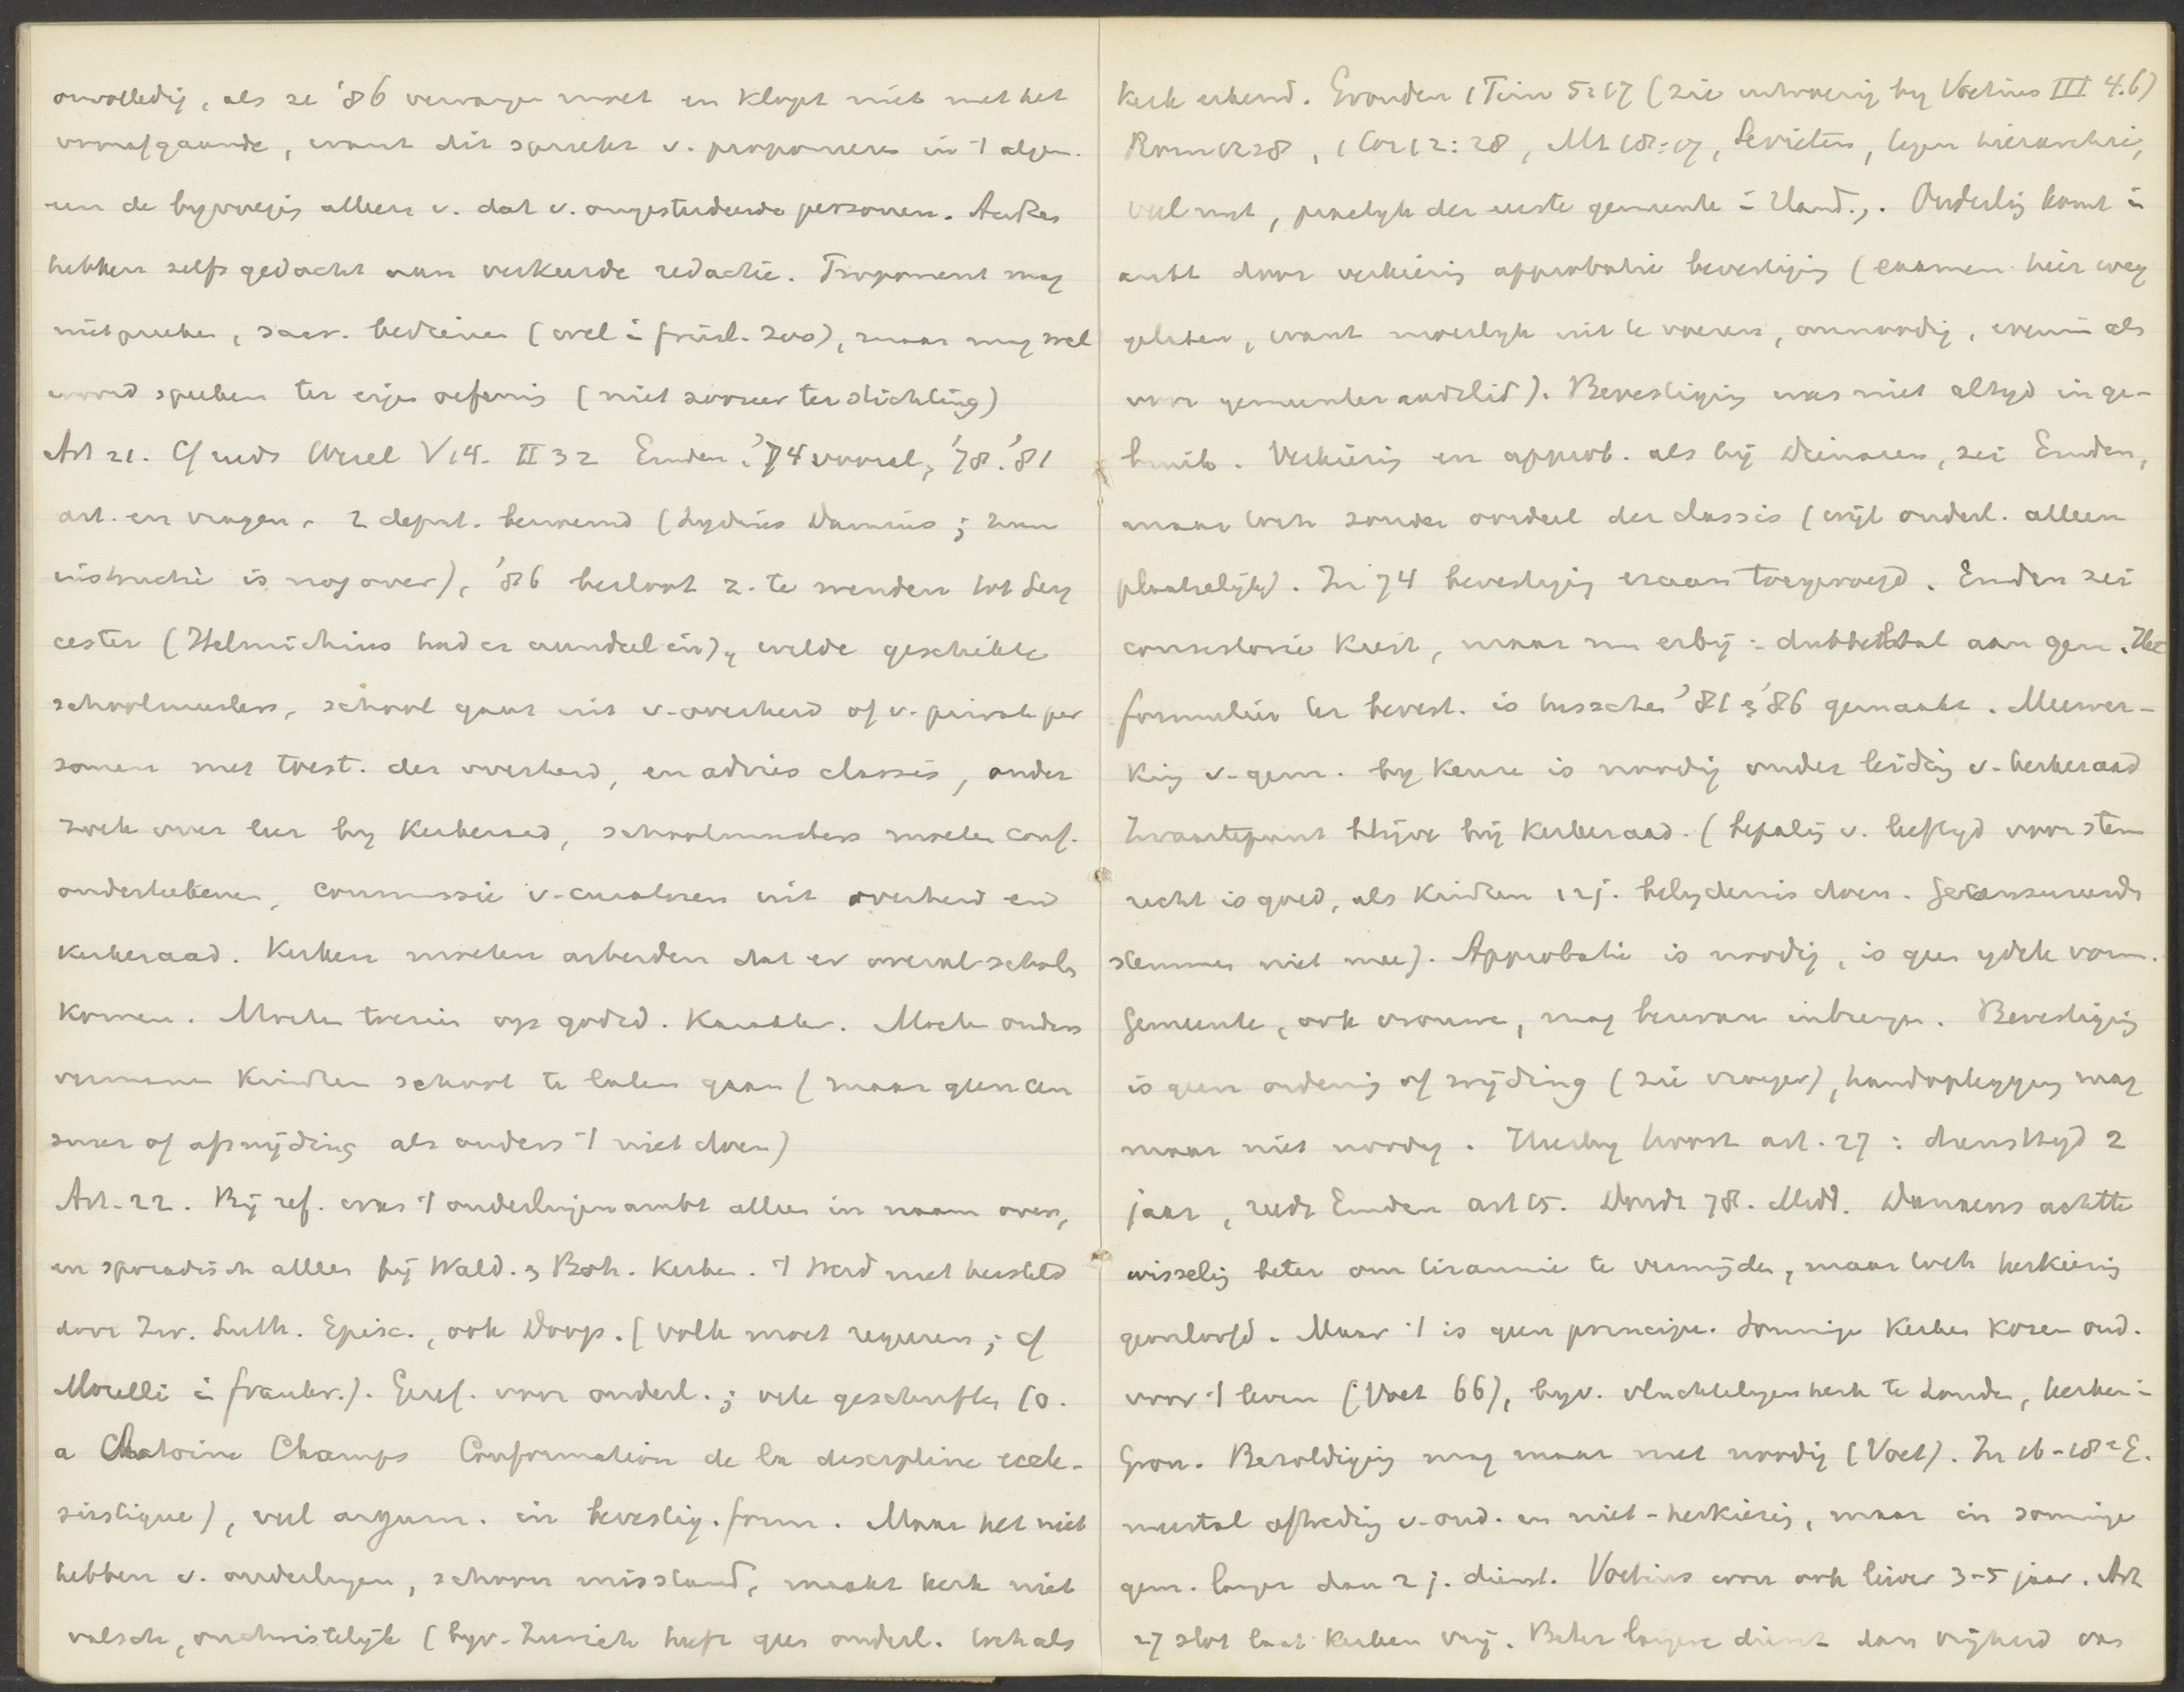 onvolledig, als ze '86 vervangen moet en klopt niet met het
voorafgaande, want dit spreekt v. proponeren in 't algem.
en de byvoeging alleen v. dat v. ongestudeerde personen. Actes
hebben zelfs gedacht aan verkeerde redactie. Proponent mag
niet preken, sacr. bedienen (wel i friesl. zoo), maar mag wel
woord spreken ter eigen oefenis (niet zoozeer ter stichting)
Art 21. Cf reeds Wesel V 14. II 32 Emden, '74 vooral, '78. '81
art. en vragen. 2 deput. benoemd (Lydius Damius; hun
instructie is nog over), '86 besloot z. te wenden tot Ley
cester (Helmichius had er aandeel in), wilde geschikte
schoolmeesters, school gaat uit v. overheid of v. private per
sonen met toest. der overheid, en advies classis, onder
zoek over leer by kerkeraad, schoolmeesters moeten conf.
onderteekenen, commissie v. curatoren uit overheid en
kerkeraad. Kerken moeten arbeiden dat er overal schols
komen. Moeten toezien op godsd. karakter. Moeten ouders
vermanen kinderen school te laten gaan (maar geen cen
suur of afsnijding als ouders 't niet doen)
Art. 22. Bij ref. was 't ouderlingenambt alleen in naam over,
en sporadisch alleen bij Wald. & Boh. kerken. 't Werd niet hersteld
door Zw. Luth. Episc., ook Doop. (volk moet regeeren; cf
Morelli i frankr.). Geref. voor ouderl.; vele geschriften (o.
a Antoine Champs Confirmation de la discipline eccle-
siastique), veel argum. in bevestig. form. Maar het niet
hebben v. ouderlingen, schoon misstand, maakt kerk niet
valsch, onchristelijk (byv. Zurich heeft geen ouderl. toch als
kerk erkend. Gronden 1 Tim 5:17 (zie uitvoerig by Voetius III 4.6)
Rom 12:8, 1 Cor 12:28, Mt 18:17, Levieten, tegen hierarchie,
veel nut, praktyk der eerste gemeente i Hand. Ouderling komt i
ambt door verkiezing approbatie bevestiging (examen hier weg
gelaten, want moeilyk uit te voeren, onnoodig, evenmin als
voor gemeenteraadslid). Bevestiging was niet altyd in ge-
bruik. Verkiezing en approb. als bij Dienaren, zei Emden,
maar toch zonder oordeel der classis (wijl ouderl. alleen
plaatselijk). In 74 bevestiging eraan toegevoegd. Emden zei
consistorie kiest, maar nu erbij: dubbeltal aan gem. Het
formulier ter bevest. is tusschen '81 & '86 gemaakt. Meewer-
king v. gem. by keuze is noodig onder leiding v. kerkeraad
Zwaartepunt blijve bij kerkeraad. (bepaling v. leeftyd voor stem
recht is goed, als kinderen 12 j. belydenis doen. Gecensureerde
stemmen niet mee). Approbatie is noodig, is geen ydele vorm.
Gemeente, ook vrouwen, mag bezwaar inbrengen. Bevestiging
is geen ordening of wijding (zie vroeger), handoplegging mag
maar niet noodig. Hierby hoort art. 27: diensttyd 2
jaar, reeds Emden art 15. Dordt 78. Midd. Danaeus achtte
wisseling beter om tirannie te vermijden, maar toch herkiezing
geoorloofd. Maar 't is geen principe. Sommige kerken kozen oud.
voor 't leven (Voet 66), byv. vluchtelingenkerk te Londen, kerken i
Gron. Bezoldiging mag maar niet noodig (Voet). In 16-18e E.
meestal aftreding v. oud. en niet-herkiezing, maar in sommige
gem. langer dan 2 j. dienst. Voetius voor ook liever 3-5 jaar. Art
27 slot laat kerken vrij. Beter langere dienst dan vrijheid van